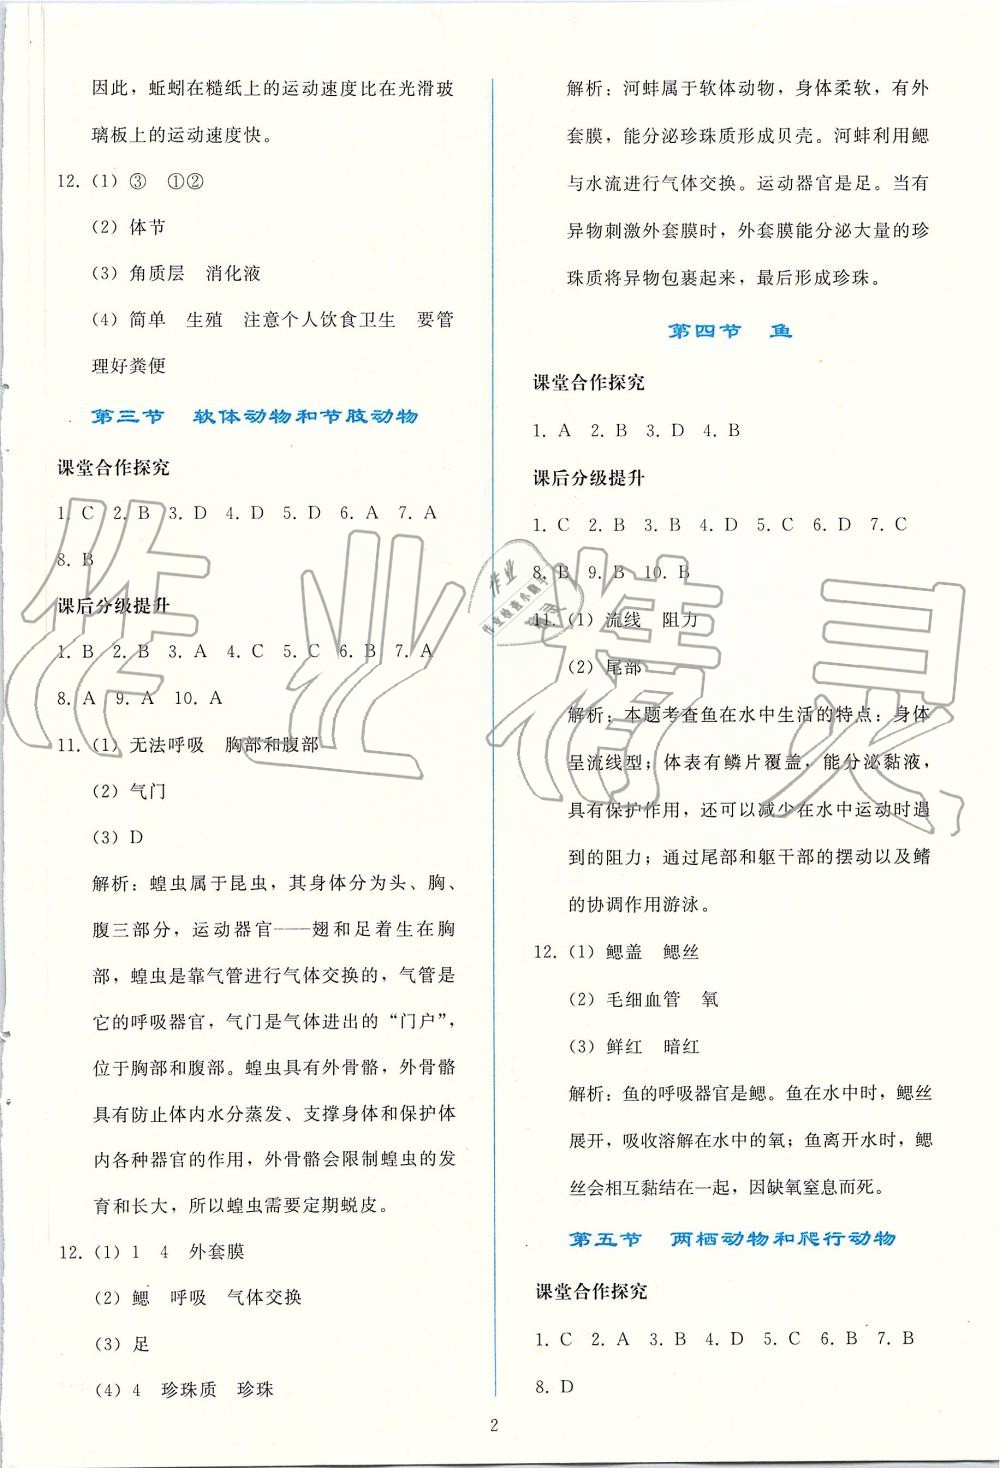 因此，蚯蚓在糙纸上的运动速度比在光滑玻
璃板上的运动速度快。
12.（1）③　①②
（2）体节
（3）角质层　消化液
（4）简单　生殖　注意个人饮食卫生　要管
理好粪便
第三节　软体动物和节肢动物
课堂合作探究
1. C　2. B　3. D　4. D　5. D　6. A　7. A
8. B
课后分级提升
1. B　2. B　3. A　4. C　5. C　6. B　7. A
8. A　9. A　10. A
11.（1）无法呼吸　胸部和腹部
（2）气门
（3）D
解析：蝗虫属于昆虫，其身体分为头、胸、
腹三部分，运动器官——翅和足着生在胸
部，蝗虫是靠气管进行气体交换的，气管是
它的呼吸器官，气门是气体进出的“门户”，
位于胸部和腹部。蝗虫具有外骨骼，外骨骼
具有防止体内水分蒸发、支撑身体和保护体
内各种器官的作用，外骨骼会限制蝗虫的发
育和长大，所以蝗虫需要定期蜕皮。
12.（1）1　4　外套膜
（2）鳃　呼吸　气体交换
（3）足
（4）4　珍珠质　珍珠
解析：河蚌属于软体动物，身体柔软，有外
套膜，能分泌珍珠质形成贝壳。河蚌利用鳃
与水流进行气体交换。运动器官是足。当有
异物刺激外套膜时，外套膜能分泌大量的珍
珠质将异物包裹起来，最后形成珍珠。
第四节　鱼
课堂合作探究
1. A　2. B　3. D　4. B
课后分级提升
1. C　2. B　3. B　4. D　5. C　6. D　7. C
8. B　9. B　10. B
11.（1）流线　阻力
（2）尾部
解析：本题考查鱼在水中生活的特点：身体
呈流线型；体表有鳞片覆盖，能分泌黏液，
具有保护作用，还可以减少在水中运动时遇
到的阻力；通过尾部和躯干部的摆动以及鳍
的协调作用游泳。
12.（1）鳃盖　鳃丝
（2）毛细血管　氧
（3）鲜红　暗红
解析：鱼的呼吸器官是鳃。鱼在水中时，鳃丝
展开，吸收溶解在水中的氧；鱼离开水时，鳃
丝会相互黏结在一起，因缺氧窒息而死。
第五节　两栖动物和爬行动物
课堂合作探究
1. C　2. A　3. B　4. D　5. C　6. B　7. B
8. D
2
作业精灵
作业